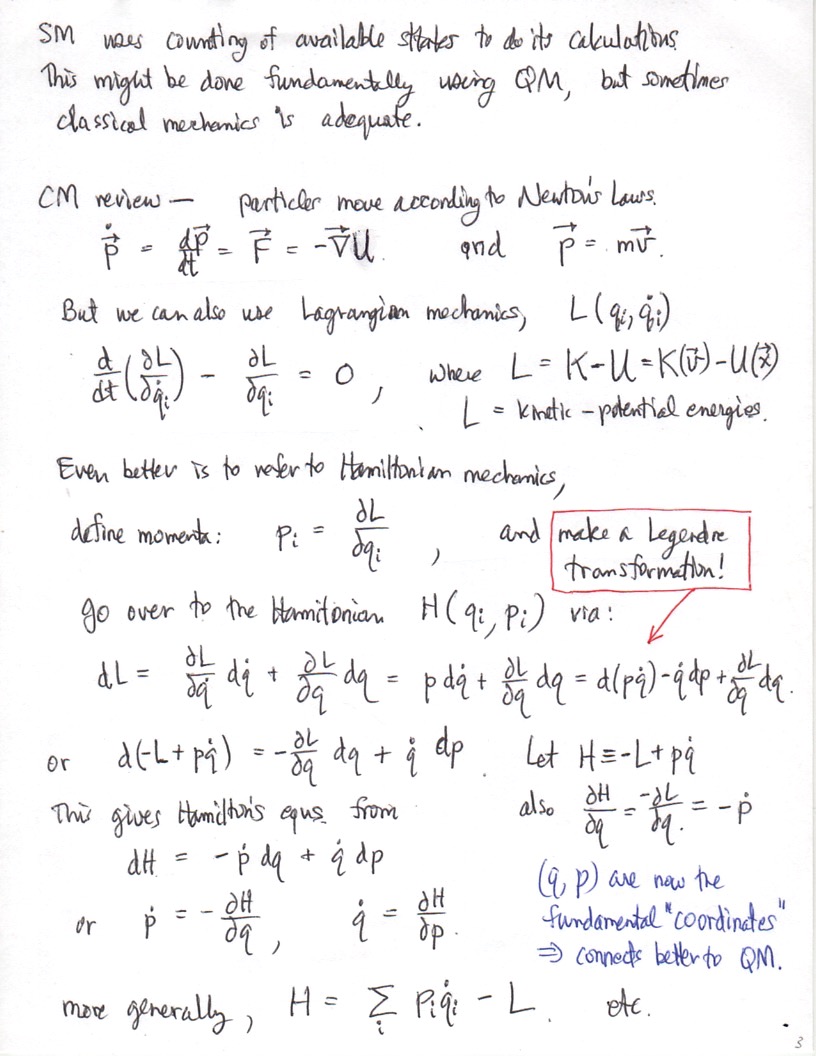 SM uses counting of available states to do its calculations.
This might be done fundamentally using QM, but sometimes
classical mechanics is adequate.
CM review — particles move according to Newton's Laws.
\dot{\vec{p}} = \frac{d\vec{p}}{dt} = \vec{F} = -\vec{\nabla}U. and \vec{p} = m\vec{v}.
But we can also use Lagrangian mechanics, L(q_i, \dot{q}_i)
\frac{d}{dt}(\frac{∂L}{∂\dot{q}_i}) - \frac{∂L}{∂q_i} = 0, where L = K-U = K(\vec{v})-U(\vec{x})
L = kinetic - potential energies.
Even better is to refer to Hamiltonian mechanics,
define momenta: p_i = \frac{∂L}{∂\dot{q}_i}, and make a Legendre
transformation!
go over to the Hamiltonian H(q_i, p_i) via:
dL = \frac{∂L}{∂\dot{q}} d\dot{q} + \frac{∂L}{∂q} dq = p d\dot{q} + \frac{∂L}{∂q} dq = d(p\dot{q}) - \dot{q} dp + \frac{∂L}{∂q} dq.
or d(-L+p\dot{q}) = -\frac{∂L}{∂q} dq + \dot{q} dp. Let H ≡ -L+p\dot{q}
This gives Hamilton's eqns. from also \frac{∂H}{∂q} = \frac{-∂L}{∂q} = -\dot{p}
dH = -\dot{p} dq + \dot{q} dp
(q, p) are now the
or \dot{p} = -\frac{∂H}{∂q}, \dot{q} = \frac{∂H}{∂p}.
fundamental "coordinates"
⇒ connects better to QM.
more generally, H = \sum_i p_i\dot{q}_i - L. etc.
3